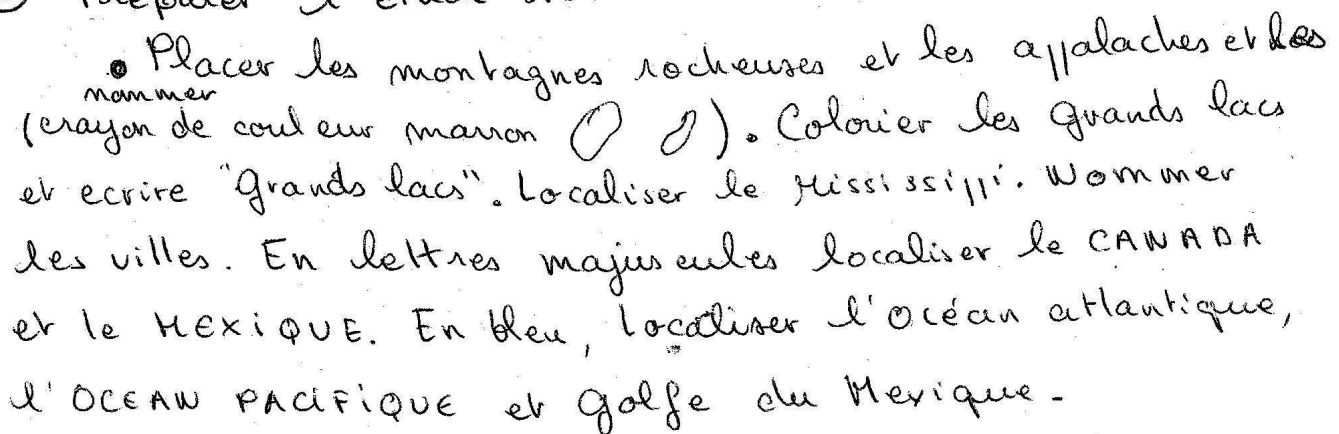 • Placer les montagnes rocheuses et les appalaches et les
nommer
(crayon de couleur marron). Colorier les grands lacs
et ecrire "grands lacs". Localiser le Mississippi. Nommer
les villes. En lettres majuscules localiser le CANADA
et le MEXIQUE. En bleu, localiser l'océan atlantique,
l'OCEAN PACIFIQUE et golfe du Mexique.